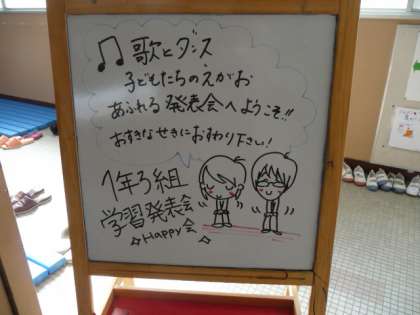 歌とダンス
子どもたちのえがお
あふれる発表会へようこそ!!
おすきなせきにおすわり下さい!
1年3組
学習発表会
☆Happy会☆